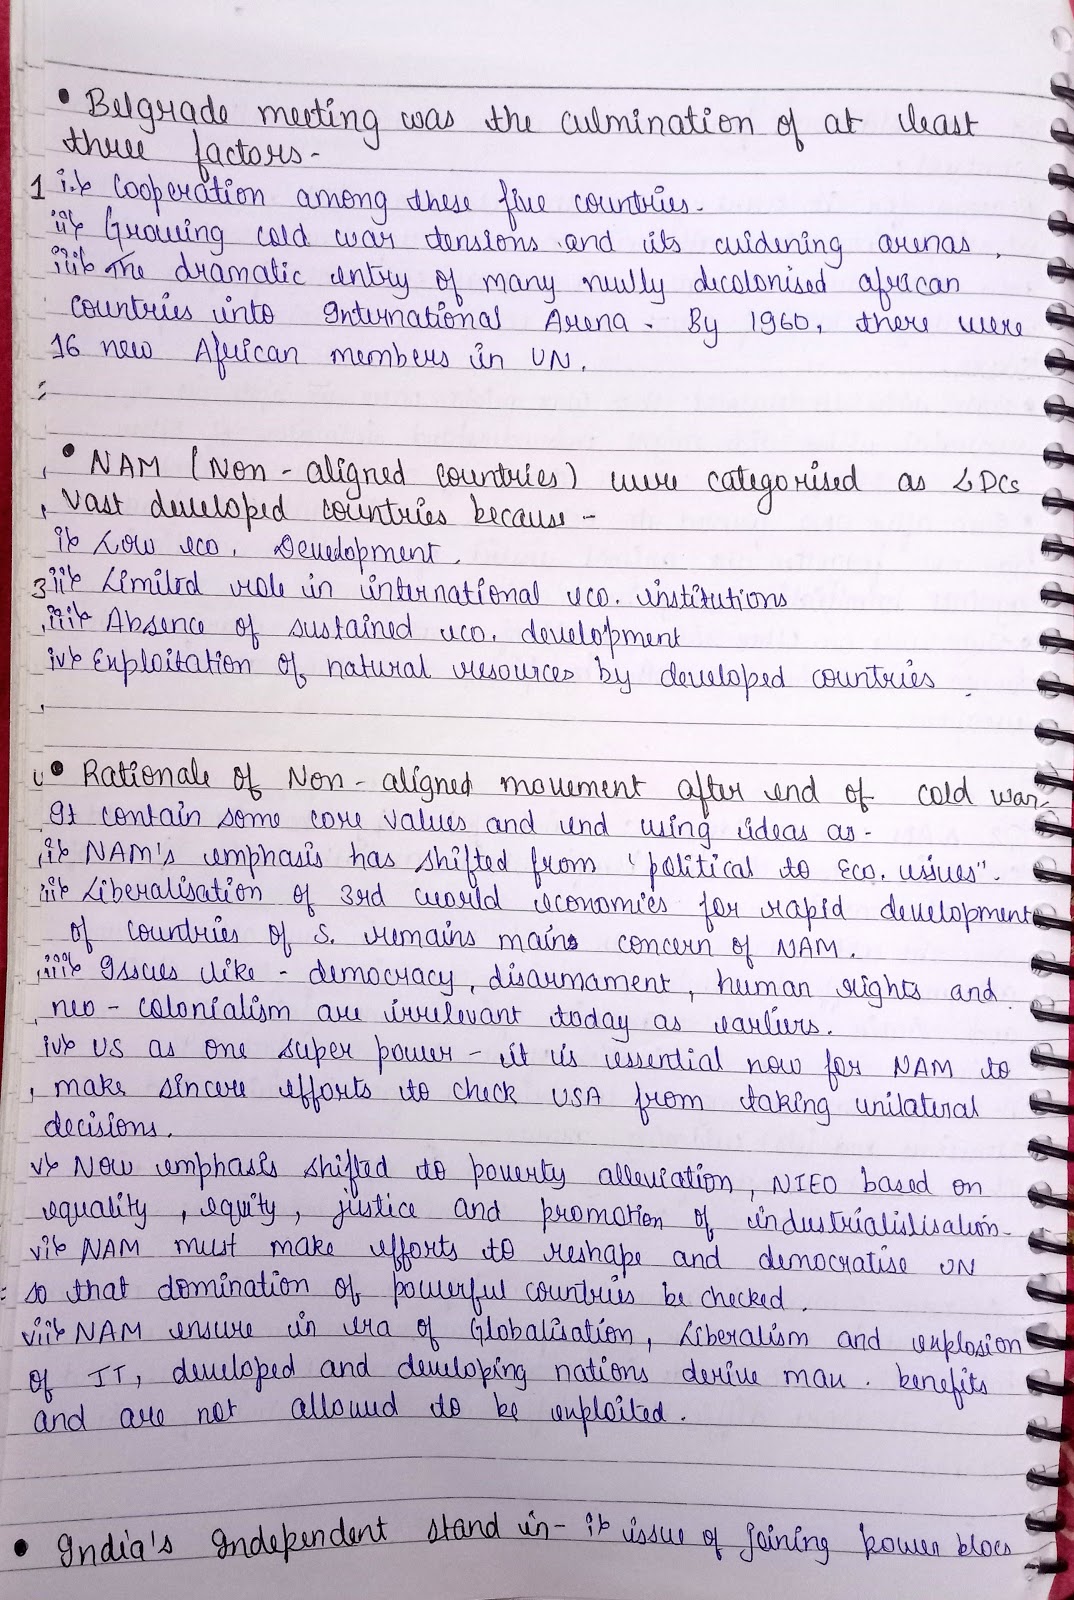 • Belgrade meeting was the culmination of at least
three factors-
1 i.> Cooperation among these five countries.
ii> Growing cold war tensions and its widening arenas.
iii> The dramatic entry of many newly decolonised african
countries into International Arena. By 1960, there were
16 new African members in UN.
• NAM (Non-aligned countries) were categorised as LDCs
Vast developed countries because -
i> Low eco. Development.
3 ii> Limited role in international eco. institutions
iii> Absence of sustained eco. development
iv> Exploitation of natural resources by developed countries.
• Rationale of Non-aligned movement after end of cold war-
It contain some core values and end using ideas as-
i> NAM's emphasis has shifted from 'political to Eco. issues".
ii> Liberalisation of 3rd world economies for rapid development
of countries of S. remains mains concern of NAM.
iii> Issues like - democracy, disarmament, human rights and
neo-colonialism are irrelevant today as earliers.
iv> US as one super power - it is essential now for NAM to
make sincere efforts to check USA from taking unilateral
decisions.
v> Now emphasis shifted to poverty alleviation, NIEO based on
equality, equity, justice and promation of industrialilisation.
vi> NAM must make efforts to reshape and democratise UN
so that domination of powerful countries be checked.
vii> NAM ensure in era of Globalisation, Liberalism and explosion
of IT, developed and developing nations derive max. benefits
and are not allowed to be exploited.
• India's Independent stand in- i> issue of joining power blocs